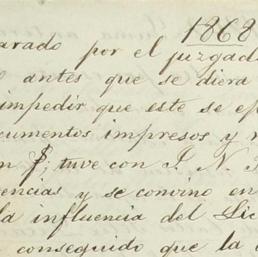 1868
arado por el juzgad
antes que se diera
impedir que este se ef
cumentos impresos y
n $, tuve con J. N.
encias y se convino en
la influencia del Lic
conseguido que la